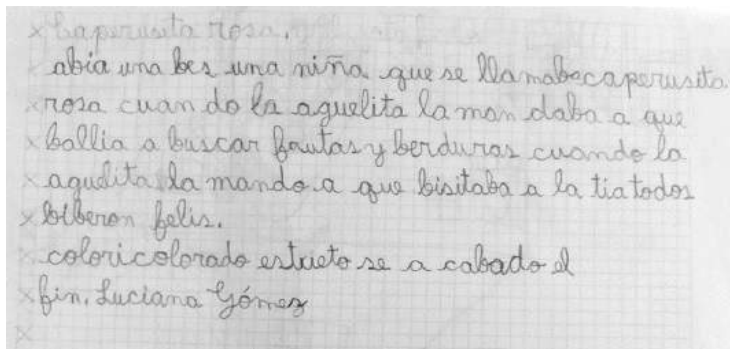 caperusita rosa.
abia una bes una niña que se llamabacaperusita
rosa cuan do la aguelita la man daba a que
ballia a buscar frutas y berduras cuando la
aguelita la mando a que bisitaba a la tia todos
biberon felis.
colori colorado estueto se a cabado el
fin. Luciana Gómez